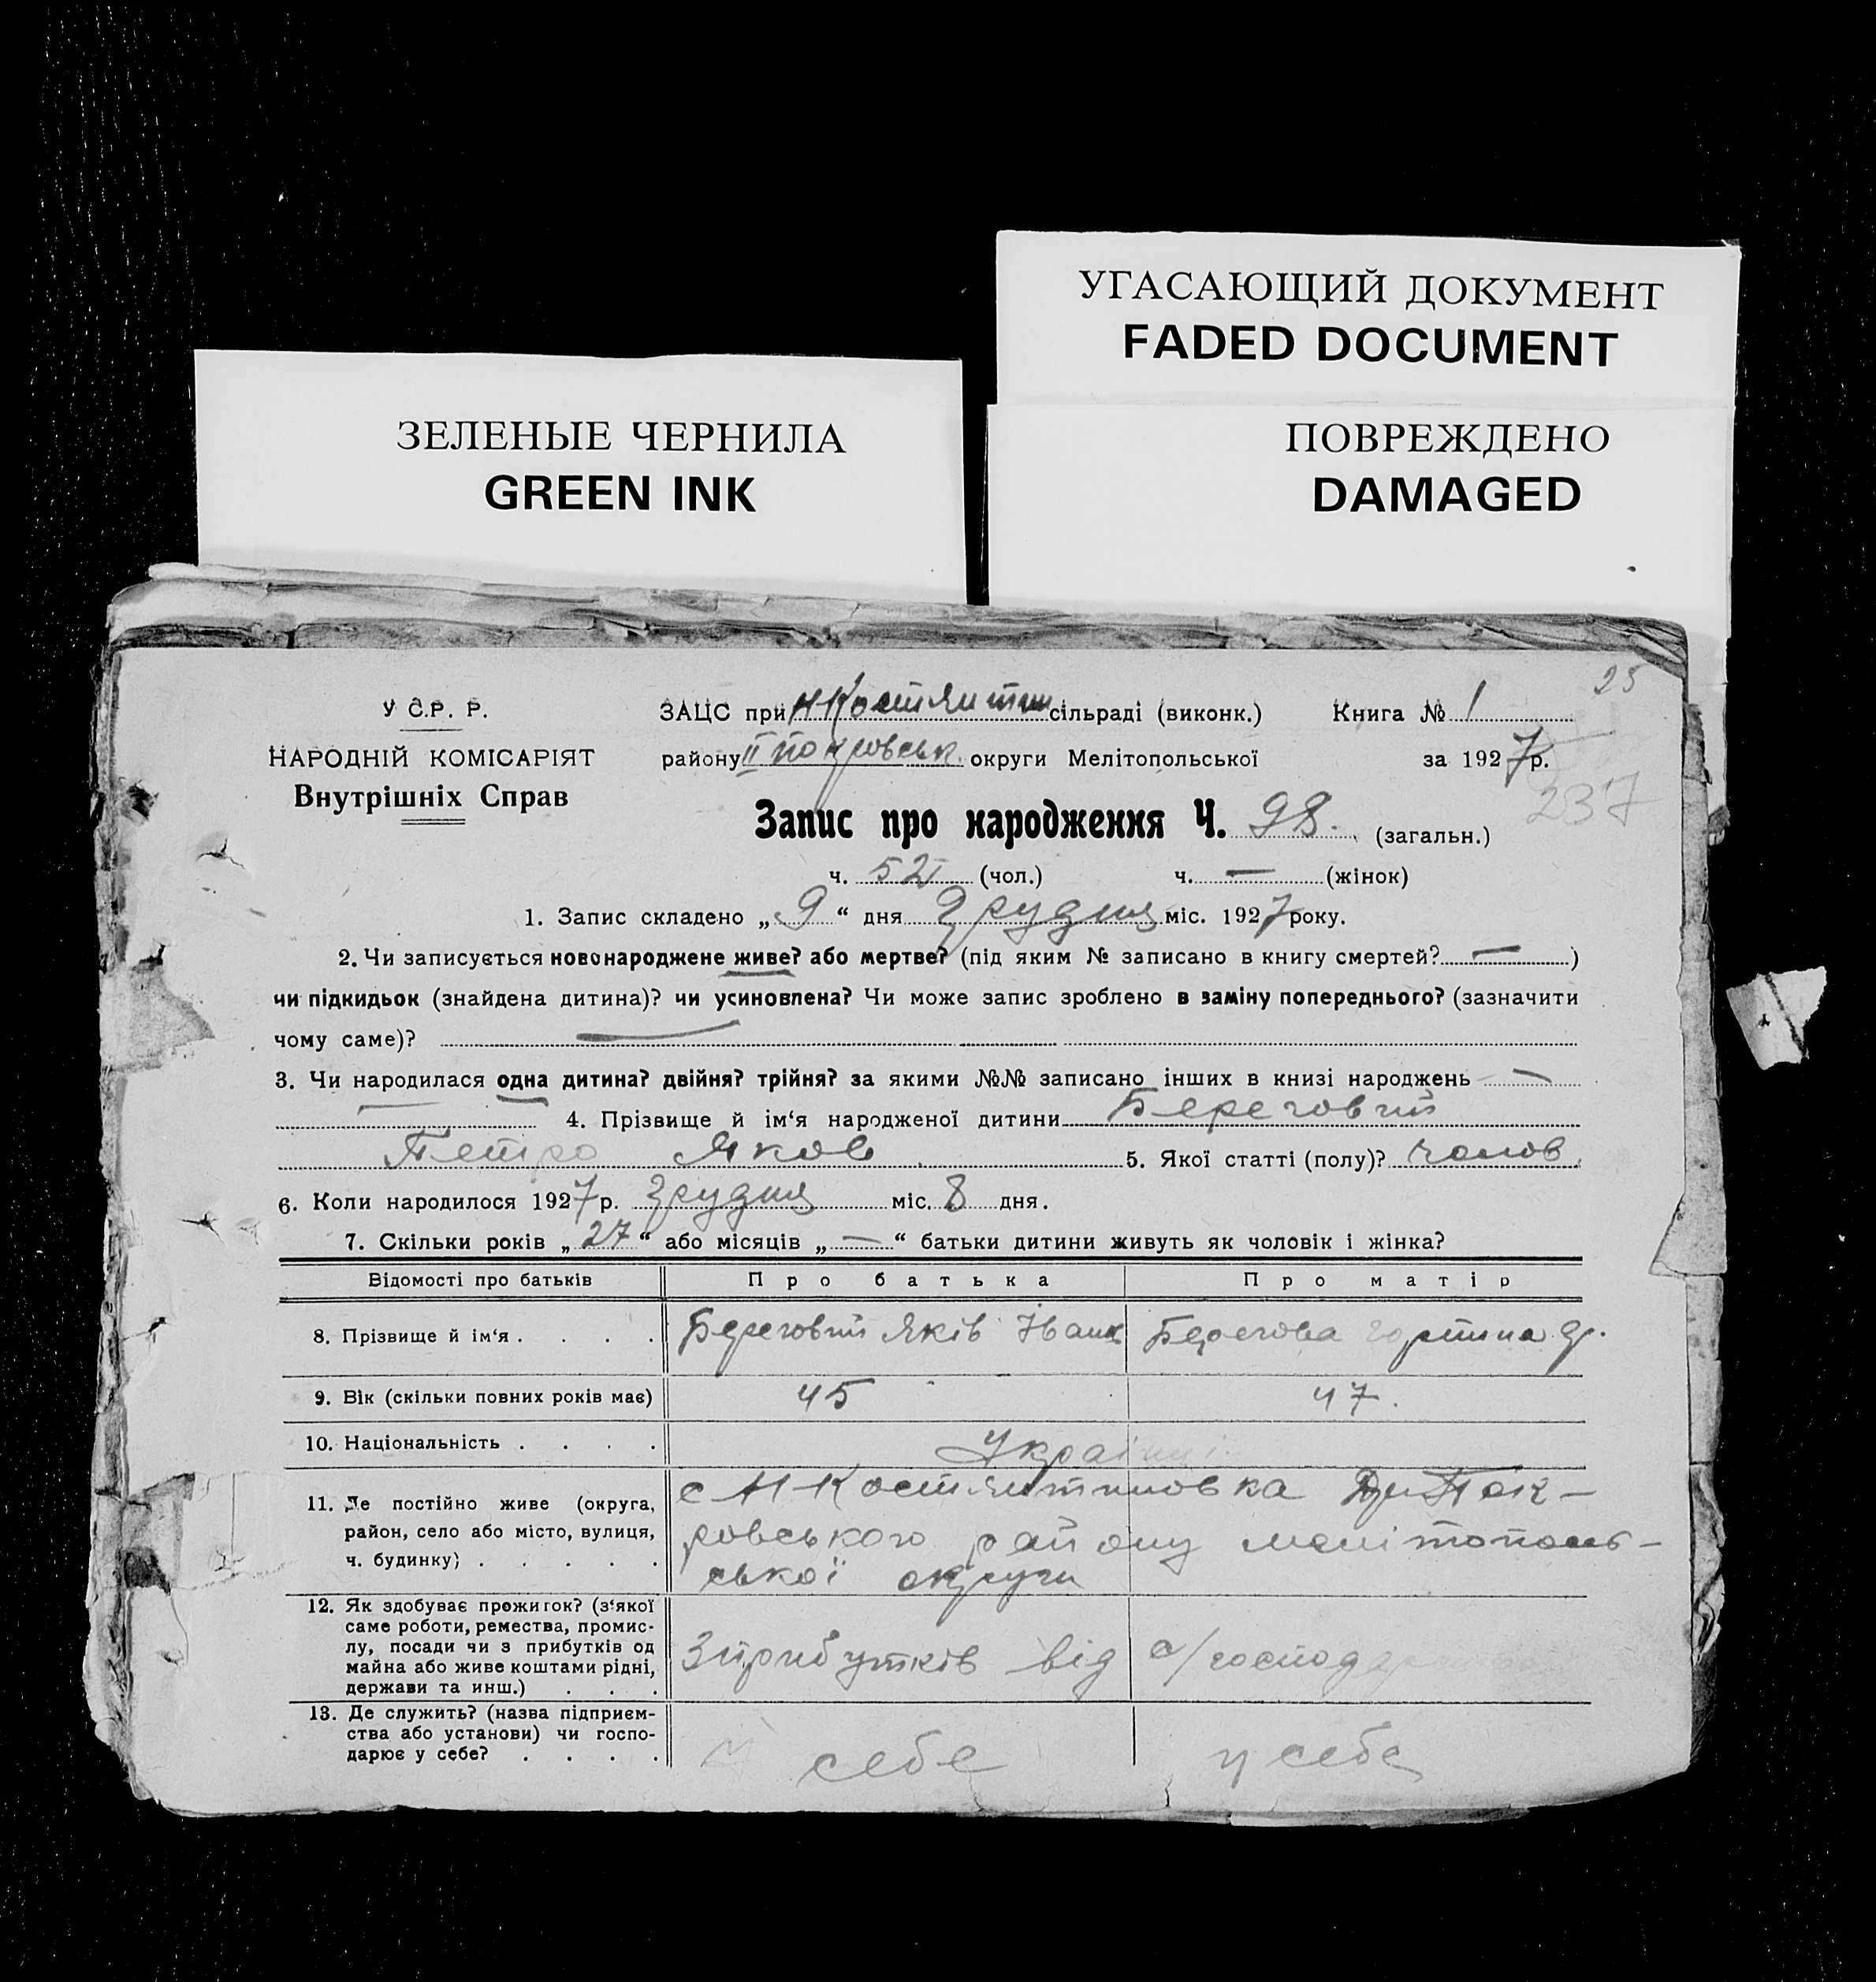 УГАСАЮЩИЙ ДОКУМЕНТ
FADED DOCUMENT
ЗЕЛЕНЫЕ ЧЕРНИЛА
GREEN INK
ПОВРЕЖДЕНО
DAMAGED
25
У С.Р. Р.
НАРОДНІЙ КОМІСАРІЯТ
Внутрішніх Справ
ЗАЦС при сільраді (виконк.) Книга № 1
району покровськ округи Мелітопольської за 1927р.
237
Запис про народження Ч. 98. (загальн.)
ч. 52 (чол.) ч. — (жінок)
1. Запис складено „9“ дня Грудня міс. 1927 року.
2. Чи записується новонароджене живе? або мертве? (під яким № записано в книгу смертей? — )
чи підкидьок (знайдена дитина)? чи усиновлена? Чи може запис зроблено в заміну попереднього? (зазначити
чому саме)? —
3. Чи народилася одна дитина? двійня? трійня? за якими №№ записано інших в книзі народжень —
— 4. Прізвище й ім‘я народженої дитини Береговий
Петро Яков 5. Якої статті (полу)? чолов
6. Коли народилося 1927 р. Грудня міс. 8 дня.
7. Скільки років „27“ або місяців „—“ батьки дитини живуть як чоловік і жінка?
Відомості про батьків Про батька Про матір
8. Прізвище й ім‘я . . . . Береговий Яків Іван Берегова
9. Вік (скільки повних років має) 45 47.
10. Національність . . . . Українці
11. Де постійно живе (округа,
район, село або місто, вулиця,
ч. будинку) . . . . .
с Н Костянтиновка Пок-
ровського району мелітополь-
ської округи
12. Як здобуває прожиток? (з‘якої
саме роботи, ремества, промис-
лу, посади чи з прибутків од
майна або живе коштами рідні,
держави та инш.) . . .
З прибутків від с/господ
13. Де служить? (назва підприєм-
ства або установи) чи госпо-
дарює у себе? . . . .
у себе у себе